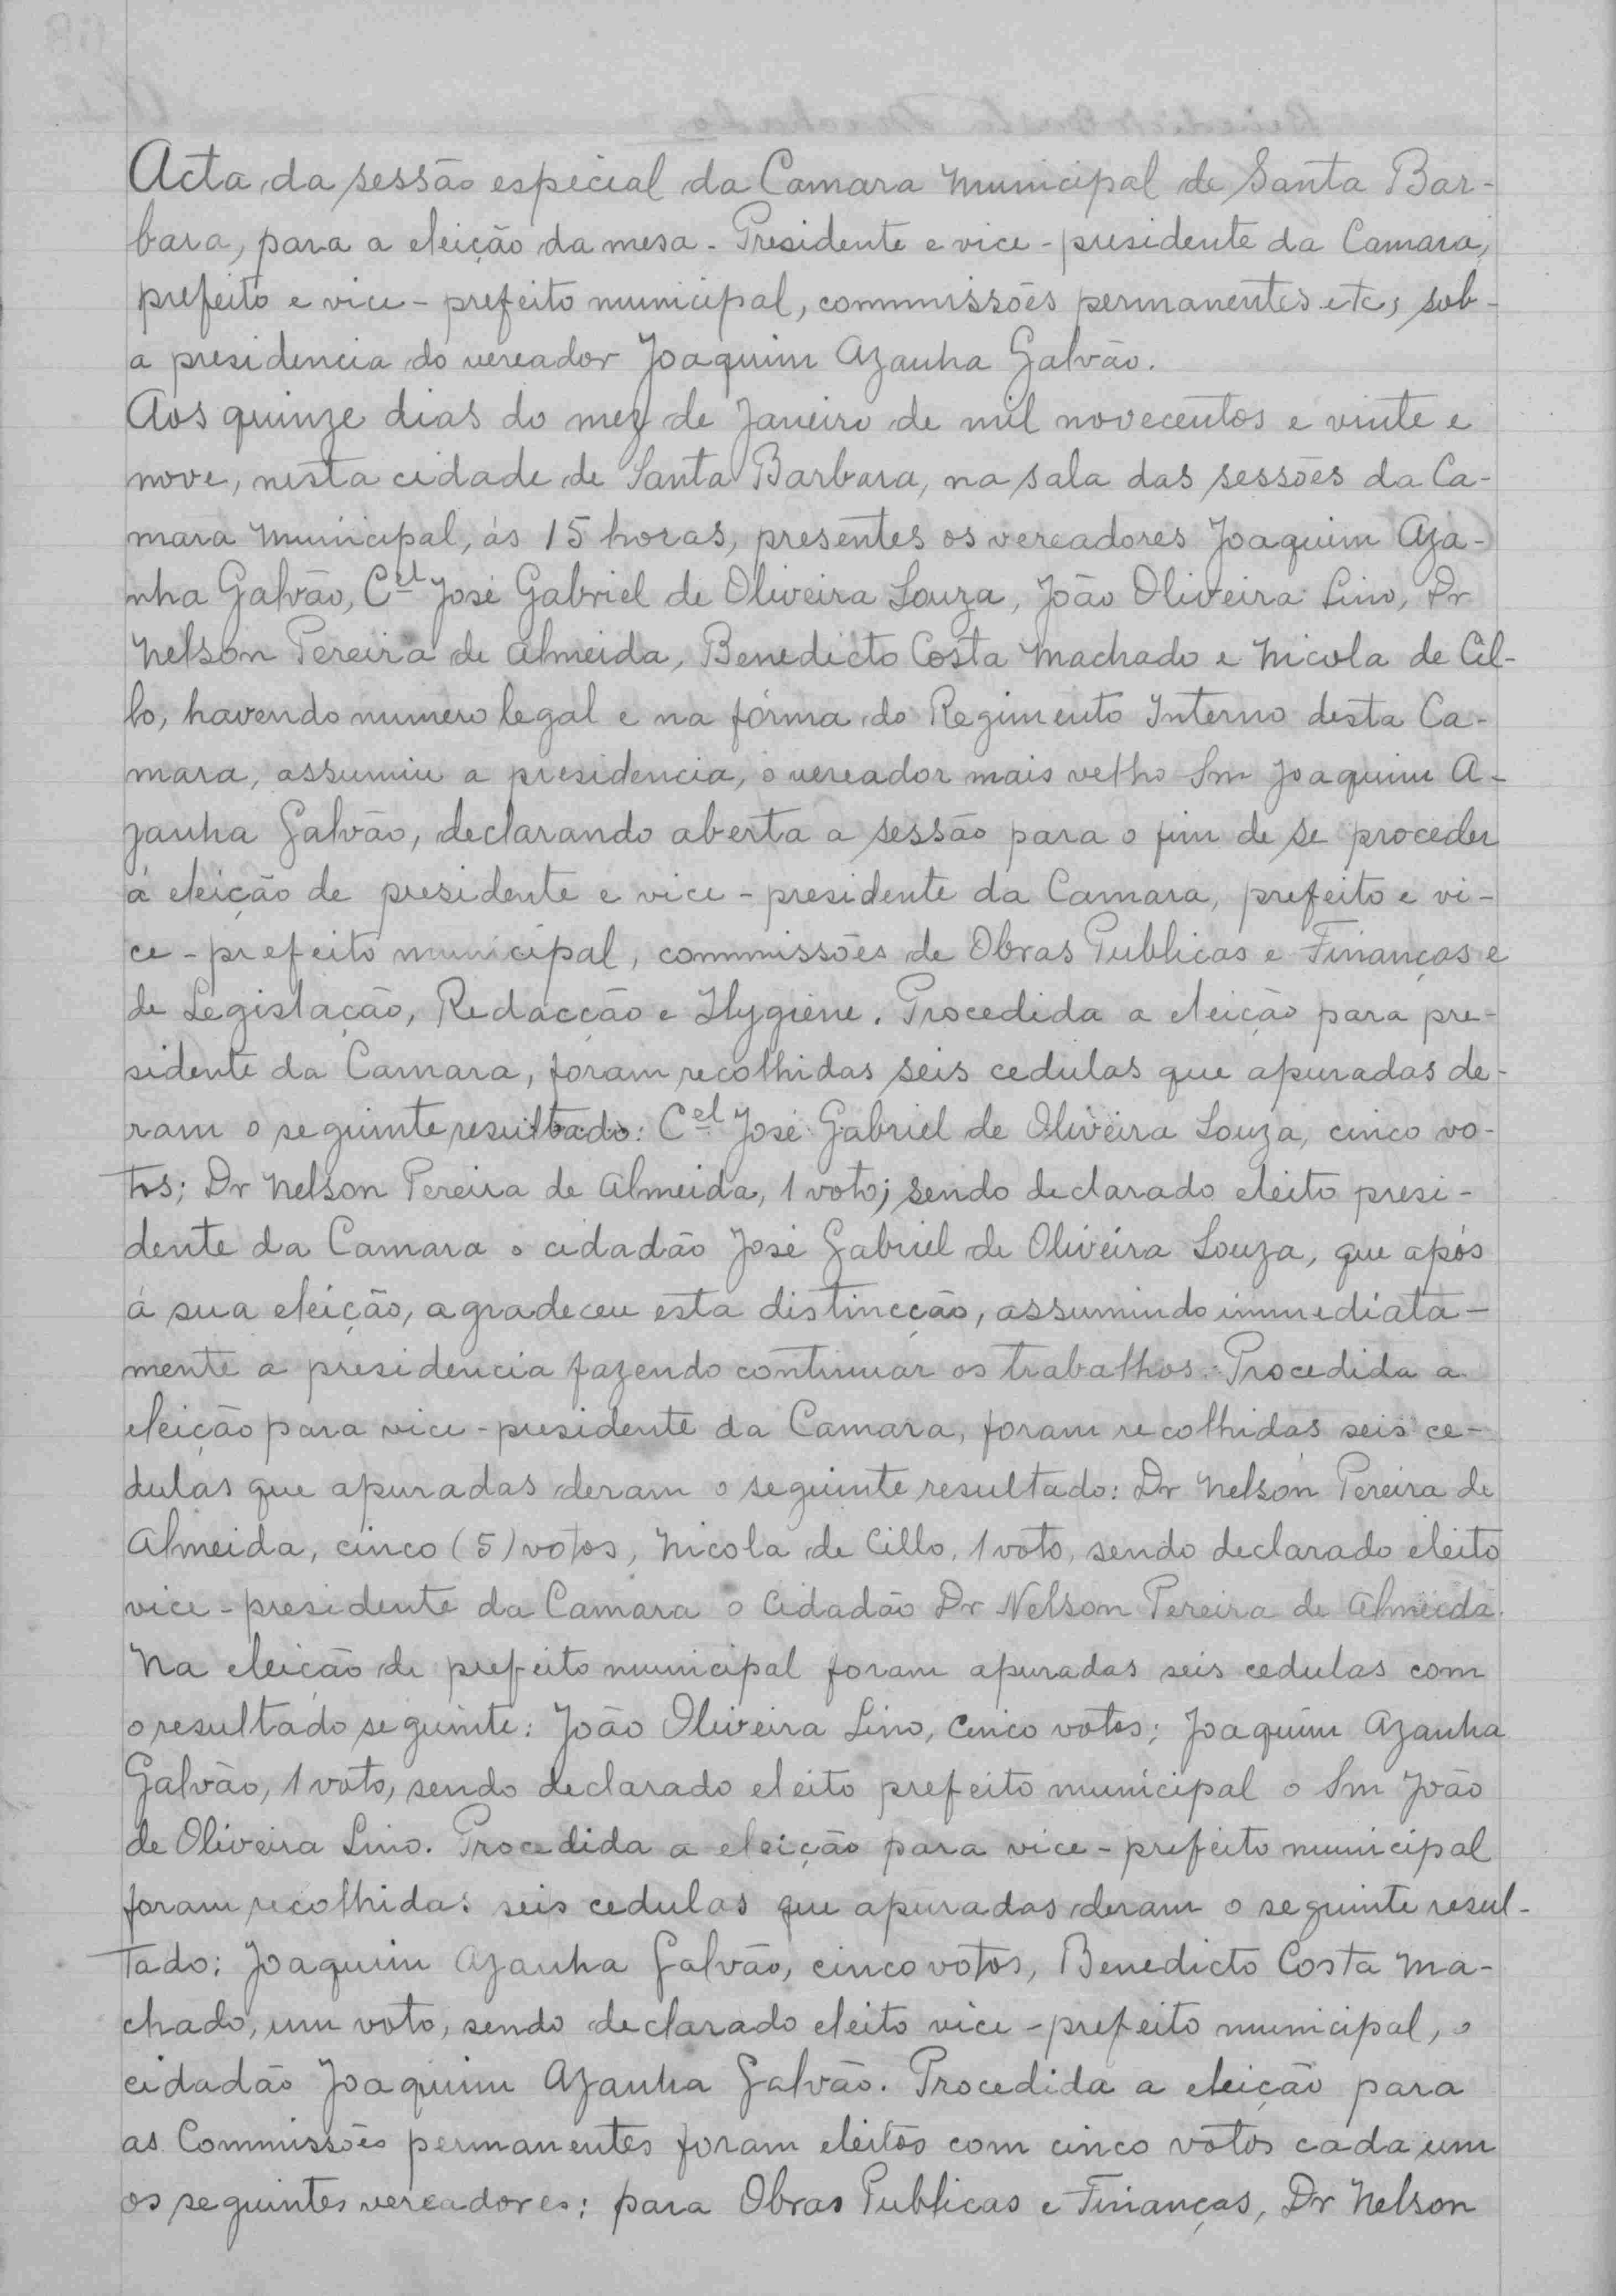 Acta da sessão especial da Camara Municipal de Santa Bar-
bara, para a eleição da mesa - Presidente e vice - presidente da Camara,
prefeito e vice - prefeito municipal, commissões permanentes etc, sob -
a presidencia do vereador Joaquim Azanha Galvão.
Aos quinze dias do mez de Janeiro de mil novecentos e vinte e
nove, nesta cidade de Santa Barbara, na sala das sessões da Ca-
mara Municipal, ás 15 horas, presentes os vereadores Joaquim Aza-
nha Galvão, Cel José Gabriel de Oliveira Souza, João Oliveira Lino, Dr
Nelson Pereira de Almeida, Benedicto Costa Machado e Nicola de Cil-
lo, havendo numero legal e na fórma do Regimento Interno desta Ca-
mara, assumiu a presidencia, o vereador mais velho Snr Joaquim A-
zanha Galvão, declarando aberta a sessão para o fim de se proceder
á eleição de presidente e vice - presidente da Camara, prefeito e vi-
ce - prefeito municipal, commissões de Obras Publicas e Finanças e
de Legislação, Redacção e Hygiene. Procedida a eleição para pre-
sidente da Camara, foram recolhidas seis cedulas que apuradas de-
ram o seguinte resultado: Cel José Gabriel de Oliveira Souza, cinco vo-
tos; Dr Nelson Pereira de Almeida, 1 voto; sendo declarado eleito presi-
dente da Camara o cidadão José Gabriel de Oliveira Souza, que após
á sua eleição, agradeceu esta distincção, assumindo immediata-
mente a presidencia fazendo continuar os trabalhos. Procedida a
eleição para vice - presidente da Camara, foram recolhidas seis ce-
dulas que apuradas deram o seguinte resultado: Dr Nelson Pereira de
Almeida, cinco (5) votos, Nicola de Cillo, 1 voto, sendo declarado eleito
vice - presidente da Camara o Cidadão Dr Nelson Pereira de Almeida.
Na eleição de prefeito municipal foram apuradas seis cedulas com
o resultado seguinte: João Oliveira Lino, cinco votos; Joaquim Azanha
Galvão, 1 voto, sendo declarado eleito prefeito municipal o Snr João
de Oliveira Lino. Procedida a eleição para vice - prefeito municipal
foram recolhidas seis cedulas que apuradas deram o seguinte resul-
tado: Joaquim Azanha Galvão, cinco votos, Benedicto Costa Ma-
chado, um voto, sendo declarado eleito vice - prefeito municipal, o
cidadão Joaquim Azanha Galvão. Procedida a eleição para
as Commissões permanentes foram eleitos com cinco votos cada um
os seguintes vereadores: para Obras Publicas e Finanças, Dr Nelson